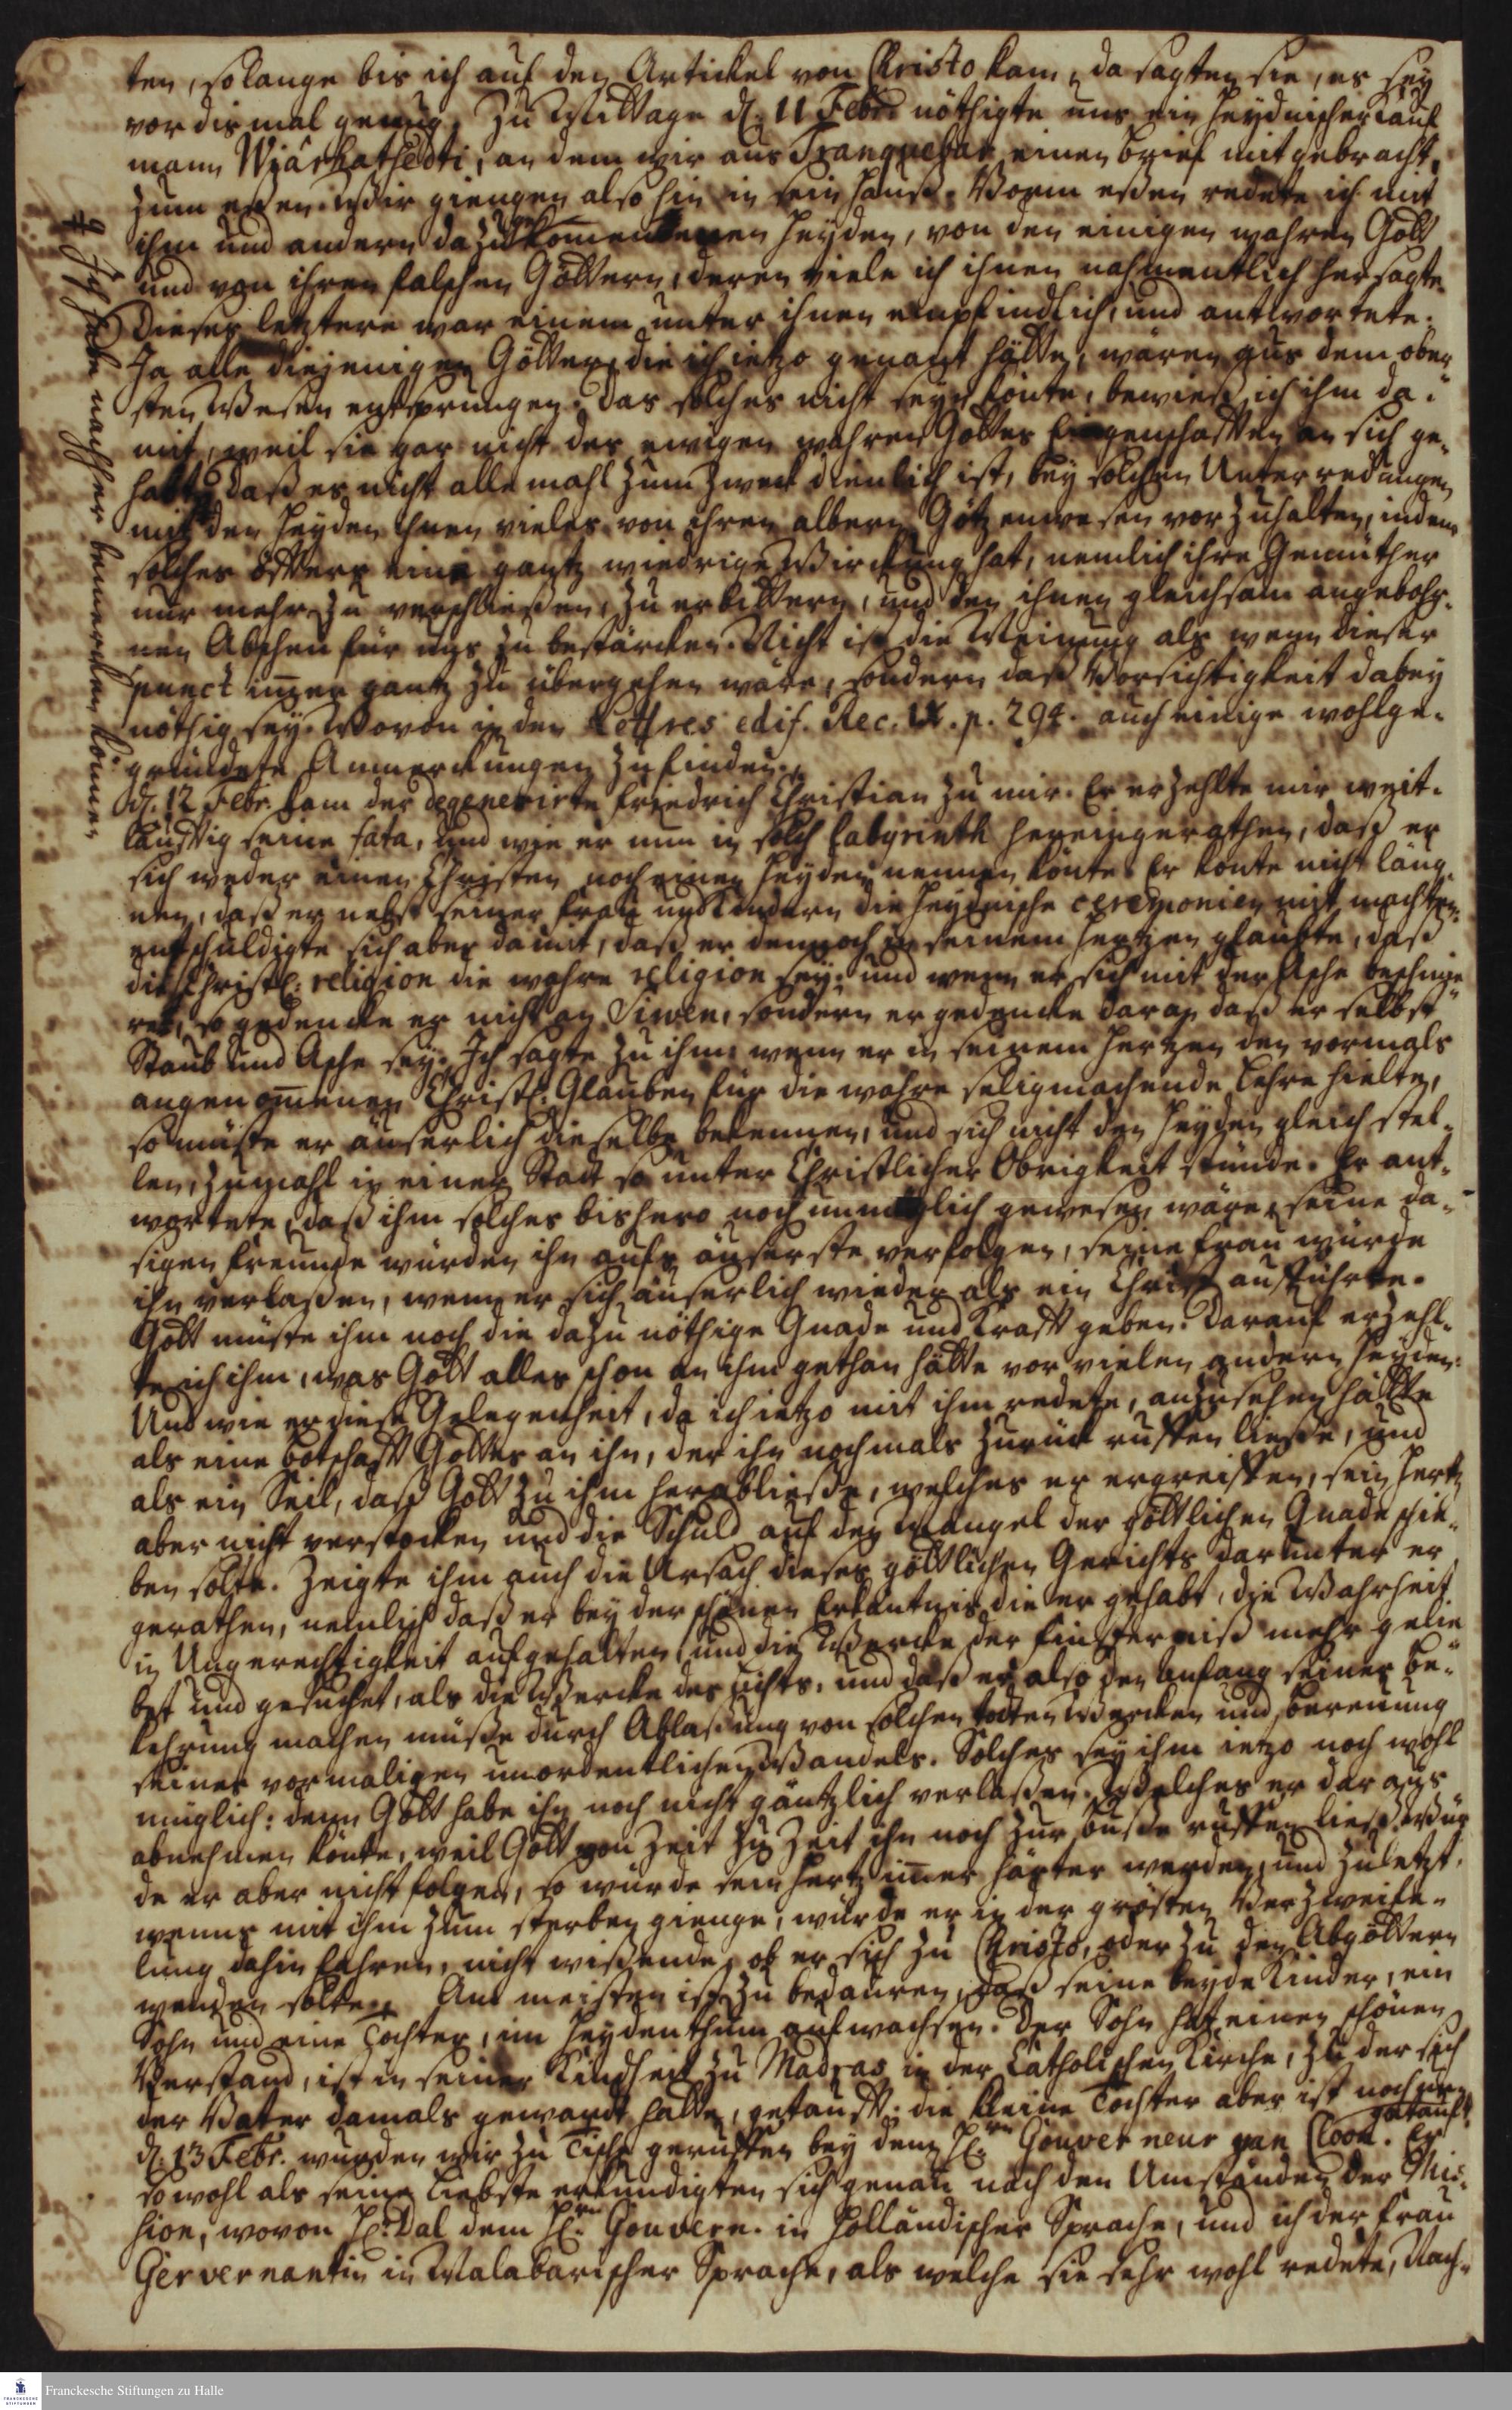 ten, so lange bis ich auf den Artickel von Christo kam, da sagten sie, es sey
vor dis mal genug. Zu Mittage d. 11 Febr. nöthigte uns ein heydnischer Kauf
mann Wjârhathedti, an dem wir aus Tranquebar einen brief mit gebracht,
zum eßen. Wir giengen also hin in sein Hauß. Vorm eßen redete ich mit
ihm und andern dazu gekommenen Heyden, von den einigen wahren Gott
und von ihren falschen Göttern, deren viele ich ihnen nahmentlich hersagte.
Dieses letztere war einem unter ihnen empfindlich, und antwortete:
Ja alle diejenigen Götter, die ich ietzo genant hätte, wären aus dem ober
sten Wesen entsprungen. Das solches nicht seyn könte, bewieß ich ihm da-
mit, weil sie gar nicht des ewigen wahren Gottes Eigenschafften an sich ge-
habt. daß es nicht alle mahl zum Zweck dienlich ist, bey solchen Unterredungen
mit den Heyden ihnen vieles von ihren albern Götzenwesen vorzuhalten, indem
solches öffters eine gantz wiedrige Wirckung hat, nemlich ihre Gemüther
nur mehr zu verschließen, zu erbittern, und den ihnen gleichsam angebohr-
nen Abscheu für uns zu bestärcken. Nicht ist die Meinung als wenn dieser
punct immer gantz zu übergehen wäre, sondern daß Vorsichtigkeit dabey
nöthig sey. Wovon in den Lettres edif. Rec. IX. p. 294. auch einige wohlge-
gründete Anmerckungen zu finden.
d. 12 Febr. kam der degenerirte Friedrich Christian zu mir. Er erzehlte mir weit-
läufftig seine fata, und wie er nun in solch labyrinth hereingerathen, daß er
sich weder einen Christen noch einen Heyden nennen könte. Er konte nicht läug-
nen, daß er nebst seiner Frau und Kindern die heydnische ceremonien mit machten,
entschuldigte sich aber damit, daß er dennoch in seinem Hertzen glaubte, daß
die Christl: religion die wahre religion sey: und wenn er sich mit der Asche beschmie
ret, so gedencke er nicht an Siwen, sondern er gedencke daran daß er selbst
Staub und Asche sey. Ich sagte zu ihm: wenn er in seinem Hertzen den vormals
angenommenen Christl: Glauben für die wahre seligmachende Lehre hielte,
so müste er äuserlich dieselbe bekennen, und sich nicht den Heyden gleich stel-
len, zumahl in einer Stadt so unter Christlicher Obrigkeit stünde. Er ant-
wortete, daß ihm solches bishero noch unmüglich gewesen wäre, seine da-
sigen Freunde würden ihn aufs äuserste verfolgen, seine Frau würde
ihn verlaßen, wenn er sich äuserlich wieder als ein Christ aufführte.
Gott müste ihm noch die dazu nöthige Gnade und Krafft geben. Darauf erzehl-
te ich ihm, was Gott alles schon an ihm gethan hätte vor vielen andern Heyden:
Und wie er diese Gelegenheit, da ich ietzo mit ihm redete, anzusehen hätte
als eine botschafft Gottes an ihn, der ihn nochmals zurück ruffen ließe, und
als ein Seil, daß Gott zu ihm herabließe, welches er ergreiffen, sein Hertz
aber nicht verstocken und die Schuld auf den Mangel der göttlichen Gnade schie-
ben solte. Zeigte ihm auch die Ursach dieses göttlichen Gerichts darunter er
gerathen, nemlich daß er bey der schönen Erkäntnis die er gehabt, die Wahrheit
in Ungerechtigkeit aufgehalten, und die Wercke der Finsterniß mehr gelie
bet und gesuchet, als die Wercke des Lichts, und daß er also den Anfang seiner be-
kehrung machen müße durch Ablaßung von solchen todten Wercken und bereuung
seines vormaligen unordentlichen Wandels. Solches sey ihm ietzo noch wohl
müglich: denn Gott habe ihn noch nicht gäntzlich verlaßen. Welches er daraus
abnehmen könte, weil Gott von Zeit zu Zeit ihn noch zur buße ruffen ließ. Wür
de er aber nicht folgen, so würde sein Hertz immer härter werden, und zuletzt,
wenns mit ihm zum sterben gienge, würde er in der grösten Verzweife-
lung dahin fahren, nicht wißende, ob er sich zu Christo, oder zu den Abgöttern
wenden solte. Am meisten ist zu bedauren, daß seine beyde Kinder, ein
Sohn und eine Tochter, im Heydenthum aufwachsen. Der Sohn hat einen schönen
Verstand, ist in seiner Kindheit zu Madras in der Catholischen Kirche, zu der sich
der Vater damals gewandt hatte, getaufft: die kleine Tochter aber ist noch un-
getauft.
d. 13 Febr. wurden wir zu Tische geruffen bey dem Hl.rn Gouverneur van Cloon. Er
so wohl als seine Liebste erkundigten sich genau nach den Umständen der Mis-
sion, wovon Hl. Dal dem Hl.rn Gouvern. in Holländischer Sprache, und ich der Frau
Gervernantin in Malabarischer Sprache, als welche sie sehr wohl redete, Nach-
Ich habe nachher bemercken können
Franckesche Stiftungen zu Halle